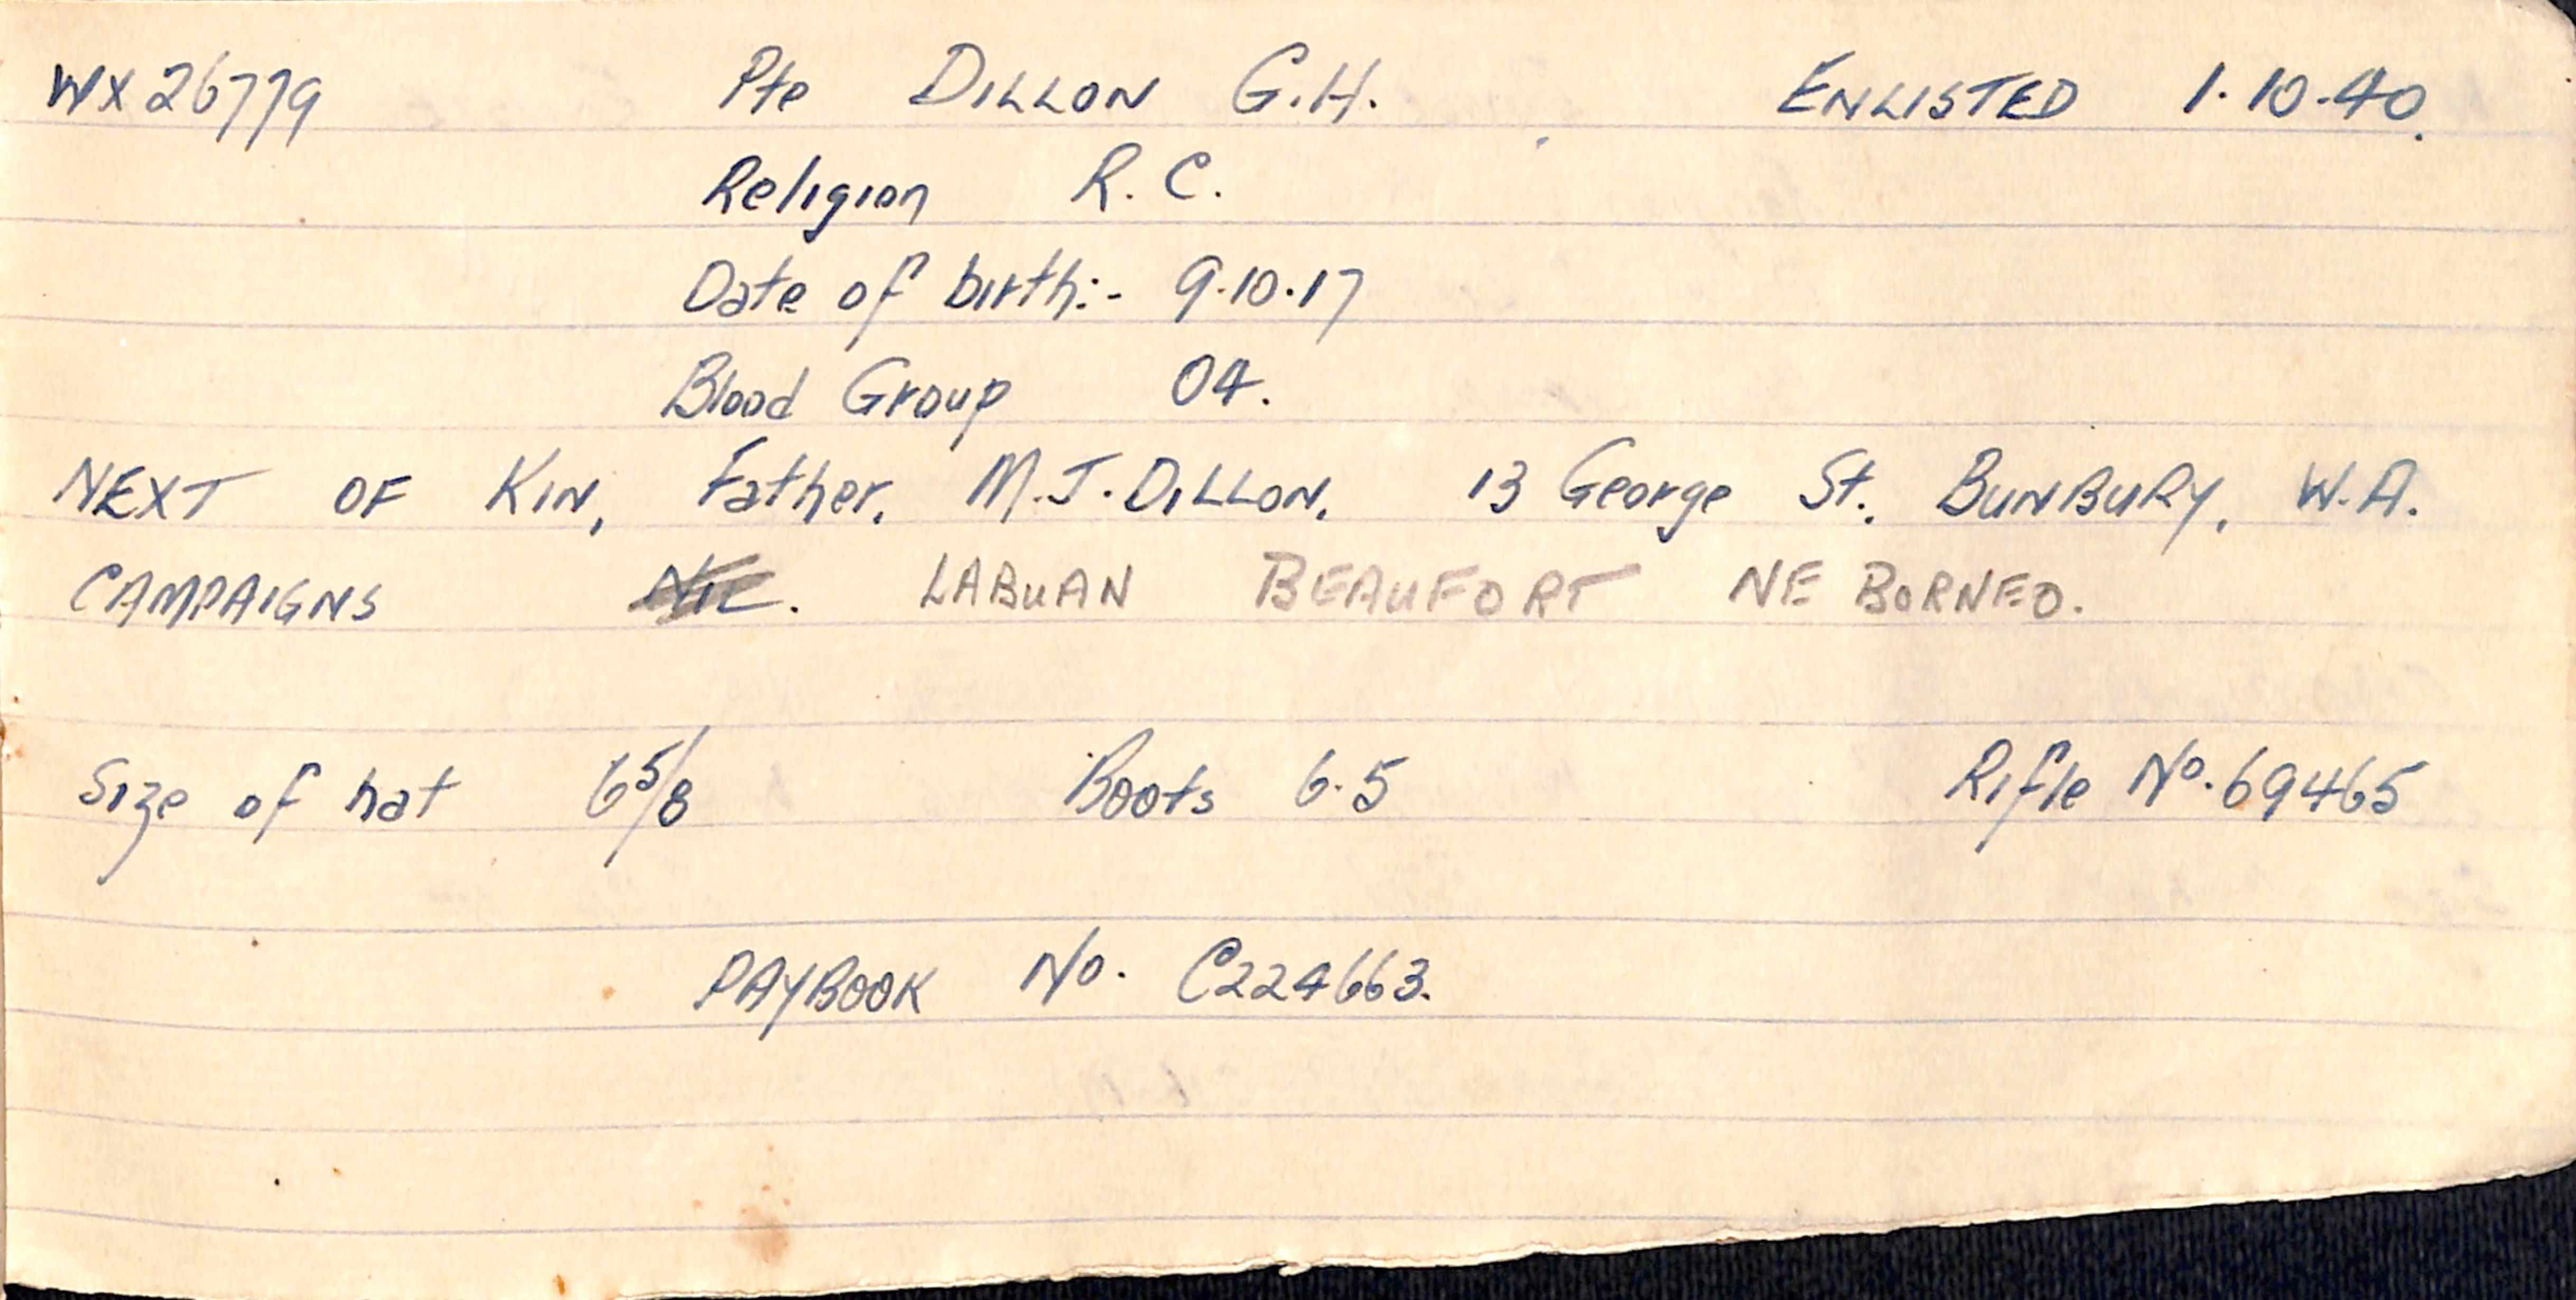 WX26779 Pte DILLON G.H. ENLISTED 1.10.40.
Religion R.C.
Date of birth:- 9.10.17
Blood Group O4.
NEXT OF KIN, Father, M.J. DILLON, 13 George St. BUNBURY, W.A.
CAMPAIGNS NIL. LABUAN BEAUFORT NE BORNEO.
Size of hat 6 5/8 Boots 6.5 Rifle No. 69465
PAYBOOK No. C224663.